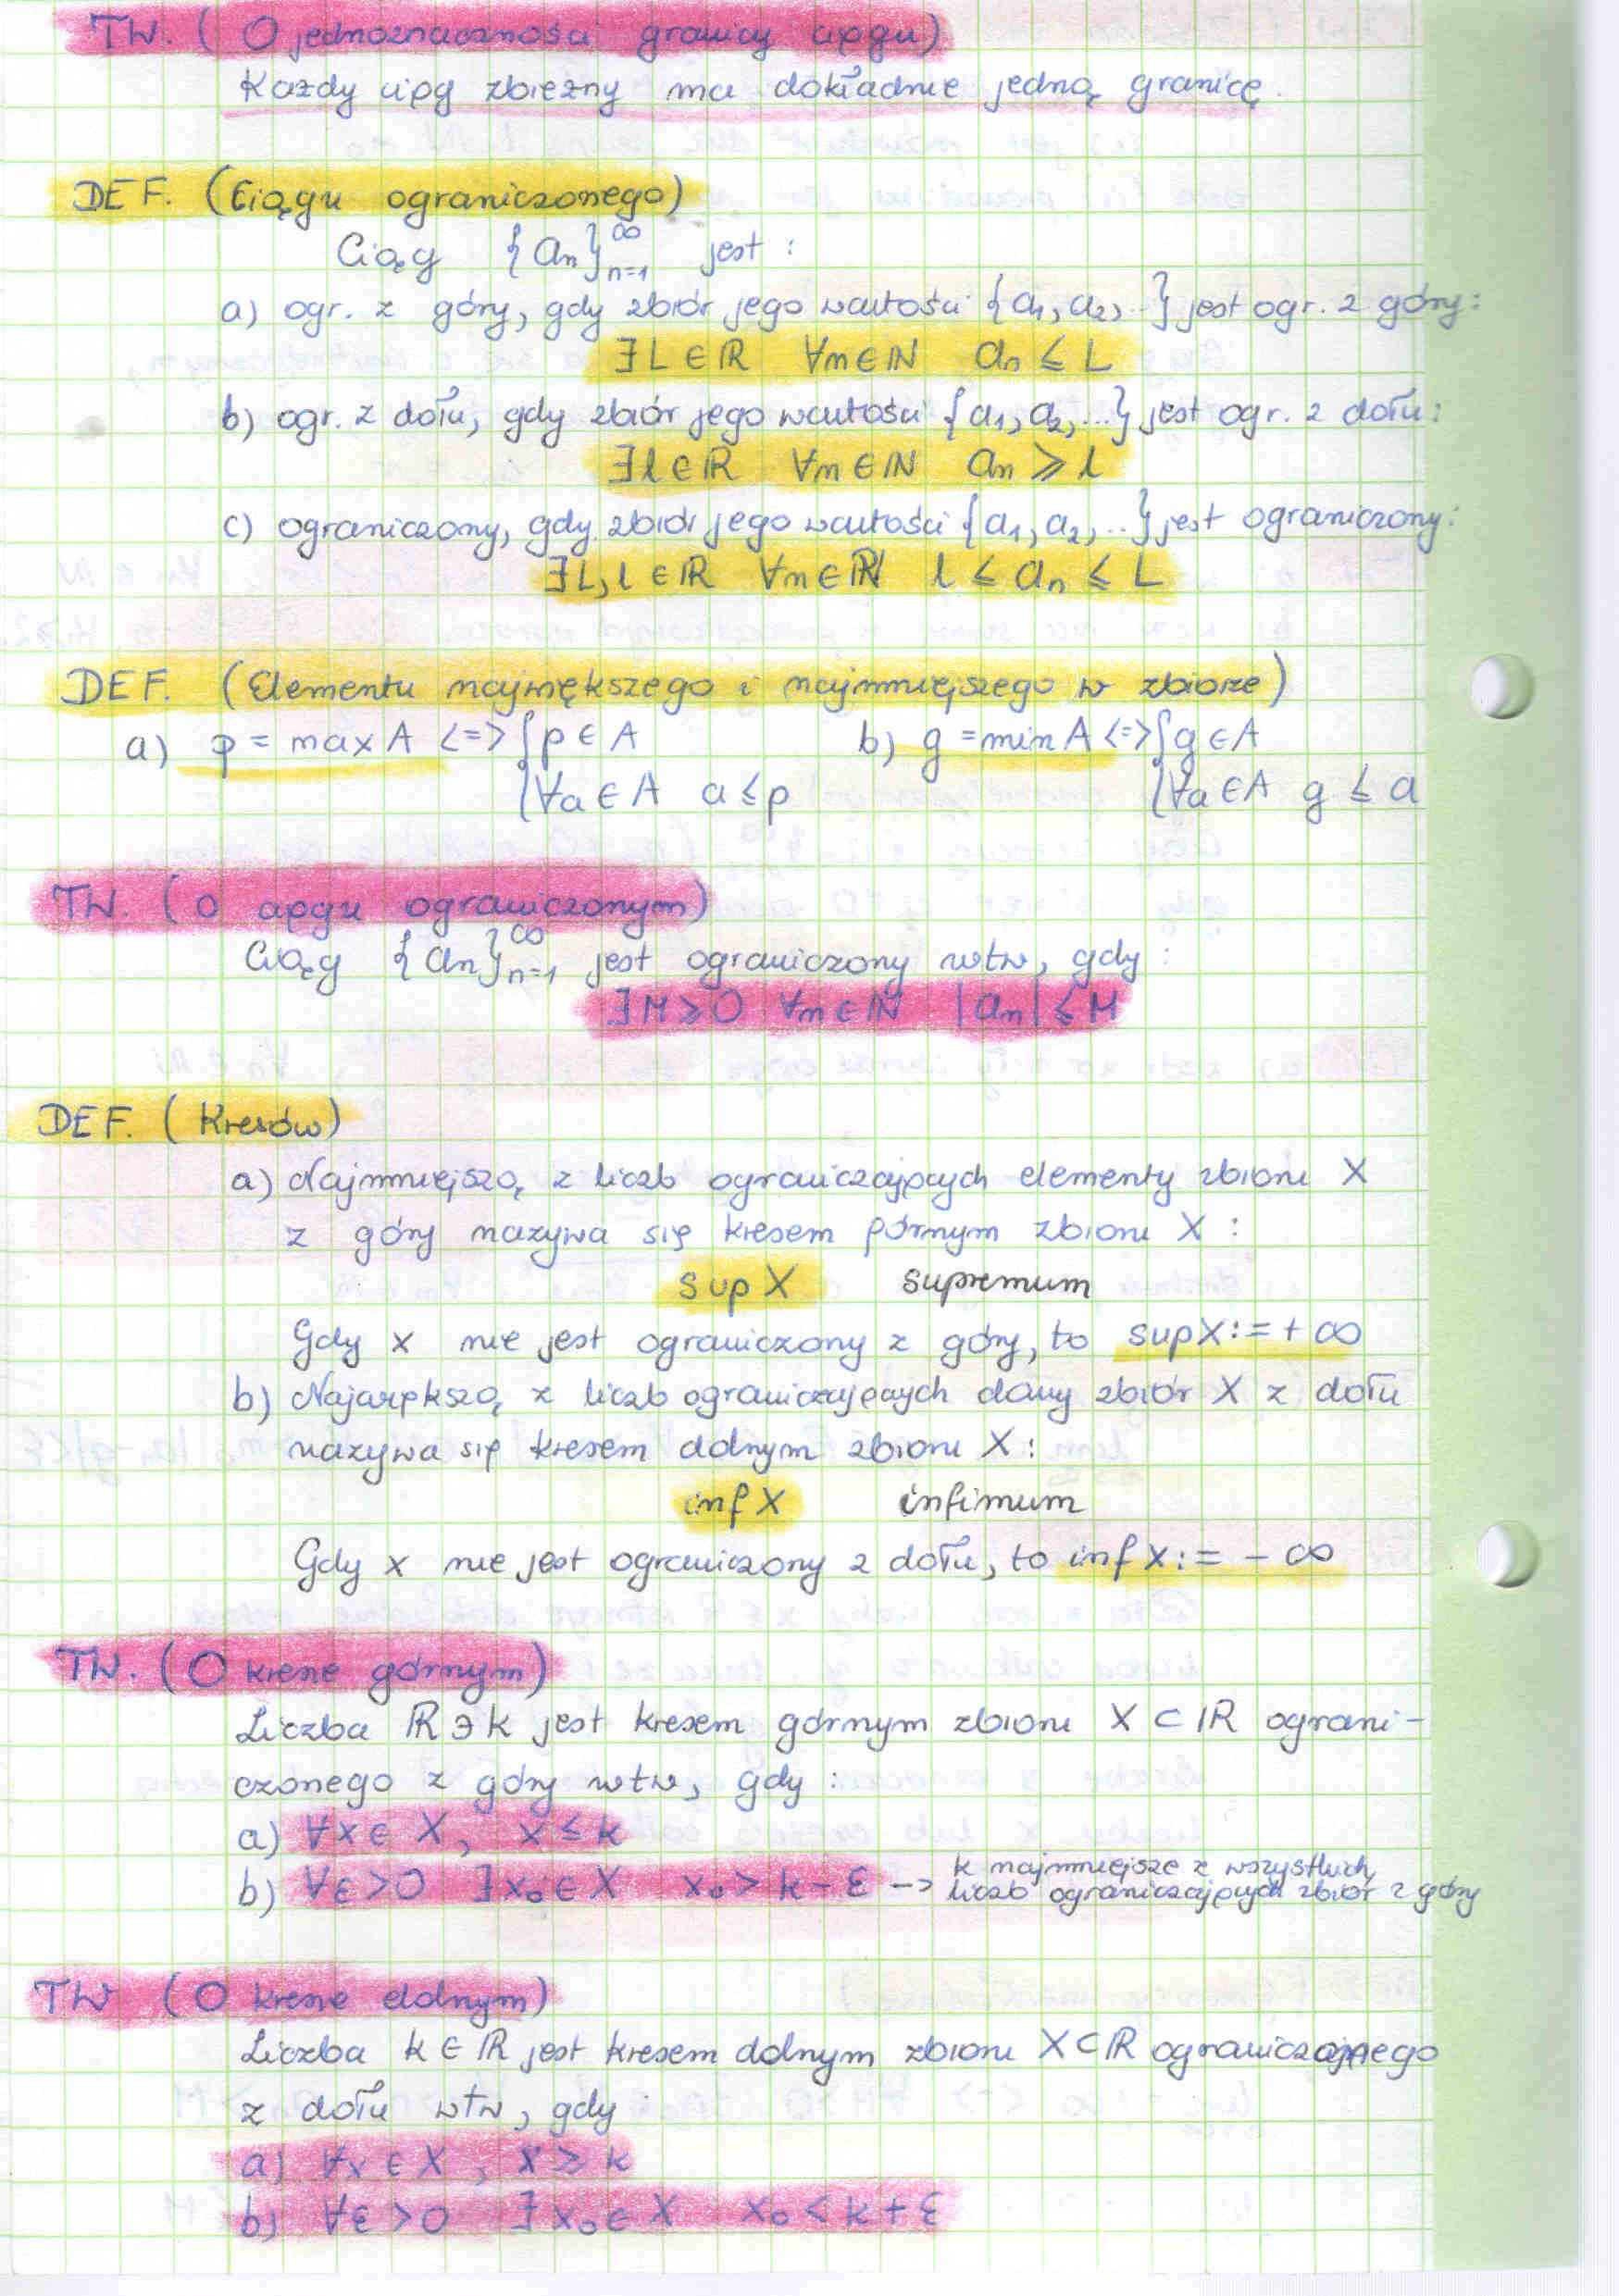 TW. (O jednoznaczności granicy ciągu)
Każdy ciąg zbieżny ma dokładnie jedną granicę.
DEF. (Ciągu ograniczonego)
Ciąg {aₙ}ₙ₌₁^∞ jest :
a) ogr. z góry, gdy zbiór jego wartości {a₁, a₂, ...} jest ogr. z góry:
∃L∈ℝ ∀n∈ℕ aₙ ≤ L
b) ogr. z dołu, gdy zbiór jego wartości {a₁, a₂, ...} jest ogr. z dołu:
∃l∈ℝ ∀n∈ℕ aₙ ≥ l
c) ograniczony, gdy zbiór jego wartości {a₁, a₂, ...} jest ograniczony:
∃L, l ∈ℝ ∀n∈ℕ l ≤ aₙ ≤ L
DEF. (Elementu największego i najmniejszego w zbiorze)
a) p = max A <=> { p ∈ A b) g = min A <=> { g ∈ A
∀a ∈ A a ≤ p ∀a ∈ A g ≤ a
TW. (O ciągu ograniczonym)
Ciąg {aₙ}ₙ₌₁^∞ jest ograniczony wtw, gdy :
∃M ≥ 0 ∀n∈ℕ |aₙ| ≤ M
DEF. (Kresów)
a) Najmniejszą z liczb ograniczających elementy zbioru X
z góry nazywa się kresem górnym zbioru X :
sup X supremum
Gdy X nie jest ograniczony z góry, to sup X := + ∞
b) Największą z liczb ograniczających dany zbiór X z dołu
nazywa się kresem dolnym zbioru X :
inf X infimum
Gdy X nie jest ograniczony z dołu, to inf X := - ∞
TW. (O kresie górnym)
Liczba ℝ∋k jest kresem górnym zbioru X ⊂ ℝ ograni-
czonego z góry wtw, gdy :
a) ∀x ∈ X, x ≤ k
b) ∀ε > 0 ∃x₀ ∈ X x₀ > k - ε -> k najmniejsze z wszystkich
liczb ograniczających zbiór z góry
TW (O kresie dolnym)
Liczba k ∈ ℝ jest kresem dolnym zbioru X ⊂ ℝ ograniczającego
z dołu wtw, gdy
a) ∀x ∈ X, x ≥ k
b) ∀ε > 0 ∃x₀ ∈ X x₀ < k + ε